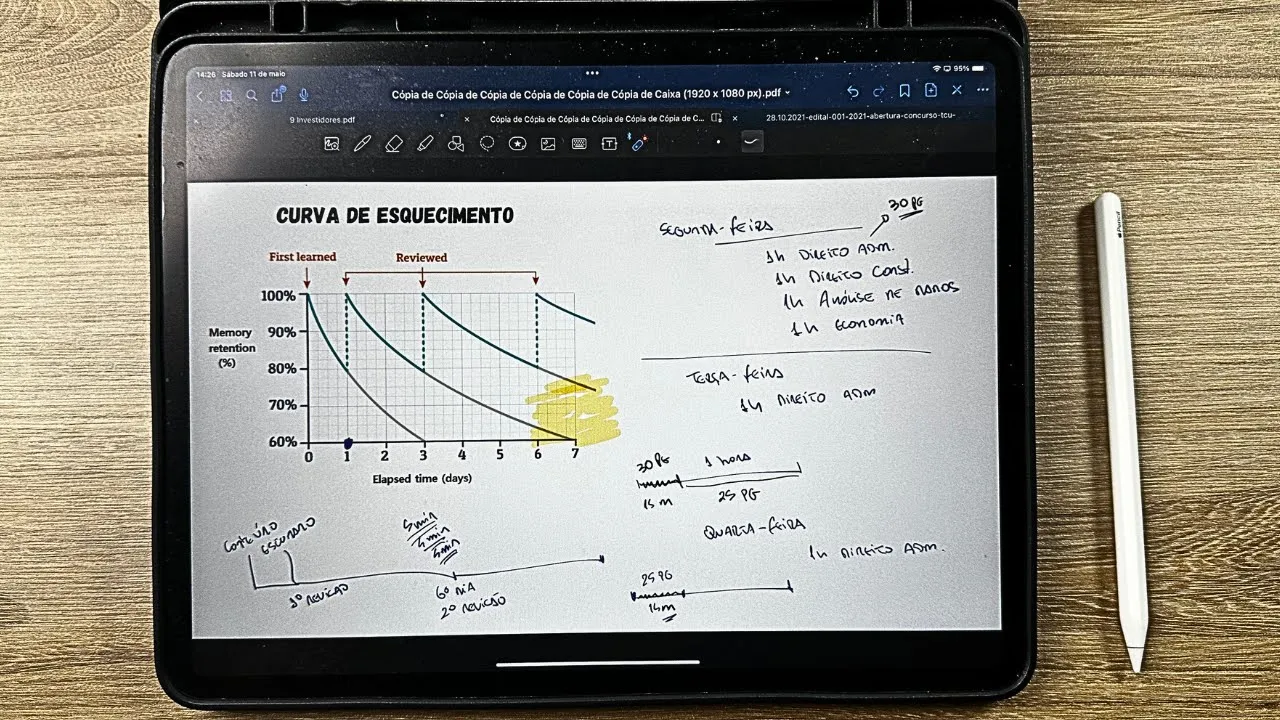 14:26 Sábado 11 de maio
95%
Cópia de Cópia de Cópia de Cópia de Cópia de Cópia de Caixa (1920 x 1080 px).pdf
9 Investidores.pdf
Cópia de Cópia de Cópia de Cópia de Cópia de Cópia de C...
28.10.2021-edital-001-2021-abertura-concurso-tcu-
CURVA DE ESQUECIMENTO
First learned
Reviewed
100%
90%
80%
70%
60%
Memory
retention
(%)
0 1 2 3 4 5 6 7
Elapsed time (days)
CONTEÚDO
ESTUDADO
1º REVISÃO
5min
5min
5min
6º DIA
2º REVISÃO
SEGUNDA-FEIRA
30 PG
1h DIREITO ADM.
1h DIREITO CONST.
1h ANÁLISE DE DADOS
1h ECONOMIA
TERÇA-FEIRA
1h DIREITO ADM
30 PG 1 HORA
15 m 25 PG
QUARTA-FEIRA
1h DIREITO ADM.
25 PG
15m
Pencil